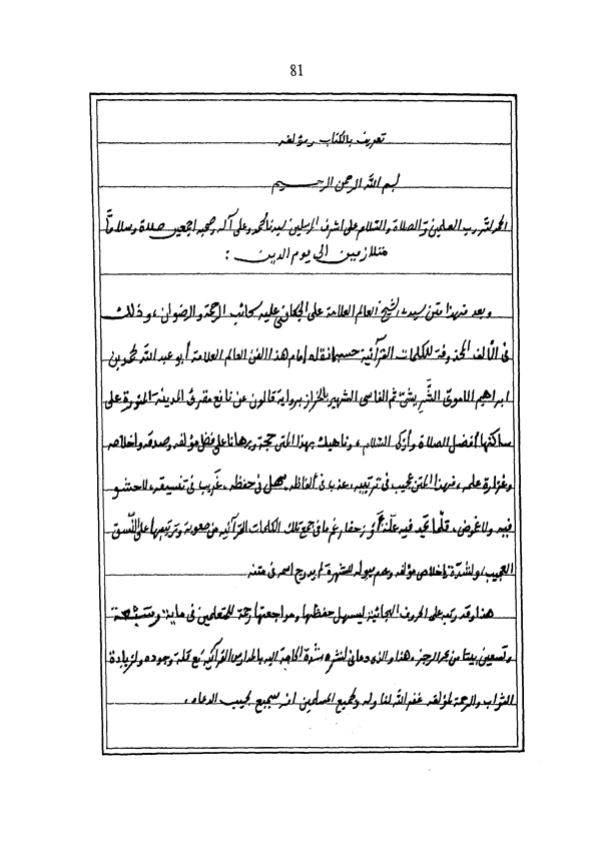 81
تعريف بالكتاب ومؤلفه
بسم الله الرحمن الرحيم
الحمد لله رب العلمين والصلاة والسلام على اشرف المرسلين سيدنا محمد وعلى آله وصحبه اجمعين صلاة وسلاماً
متلازمين الى يوم الدين :
وبعد فهذا متن الشيخ العالم العلامة على الجكانى عليه سحائب الرحمة والرضوان ، وذلك
فى الألف المحذوفة للكلمات القرآنية حسبما نقله إمام هذا الفن العالم العلامة أبو عبد الله محمد بن
ابراهيم الاموىّ الشَّريشىّ ثم الفاسى الشهير بالخراز برواية قالون عن نافع مقرئ المدينة المنورة على
ساكنها أفضل الصلاة وأزكى السّلام ، وناهيك بهذا المتن حجة وبرهانا على فضل مؤلفه وصدقه واخلاصه
وغزارة علمه ، فهذا المتن عجيب فى ترتيبه ، عذب فى ألفاظه سهل فى حفظه . غريب فى تنسيقه ، لا حشو
فيه ولا غموض ، قلّما تجد فيه علّة أو زحفا رغم ما فى جمع تلك الكلمات القرآنيه من صعوبة وترتيبها على النّسق
العجيب ، ولشدّة إخلاص مؤلفه وعدم ميوله للشهرة لم يدرج اسمه فى متنه
هذا وقد رتبه على الحروف الهجائية ليسهل حفظها ومراجعتها رحمة للمتعلمين فى ماية
وتسعين بيتا من بحر الرجز ، هذا والذى دعانى لنشره شدة الحاجة اليه بالمدارس القرآنيه مع قلة وجوده ولزيادة
الثواب والرحمة لمؤلفه غفر الله لنا وله ولجميع المسلمين انه سميع مجيب الدعاء .